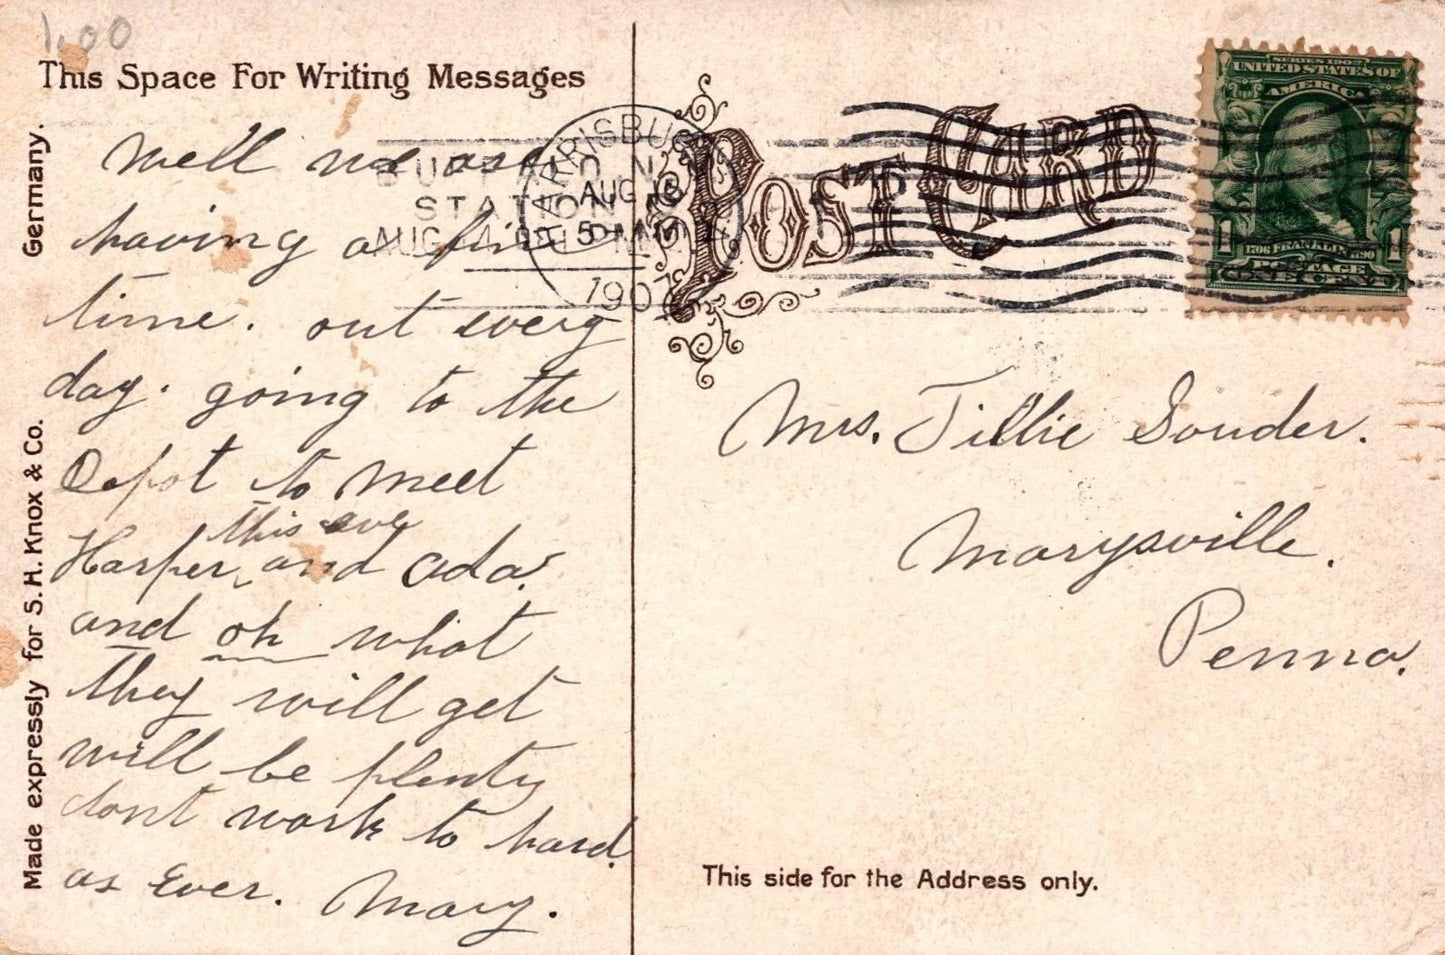 1.00
This Space For Writing Messages
Well we are
having a fine
time. out every
day. going to the
Depot to meet
this eve
Harper, and Ada.
and oh what
they will get
will be plenty
dont work to hard.
as Ever. Mary.
Made expressly for S. H. Knox & Co. Germany.
HARRISBURG
AUG 15
5 - PM
1907
STATION
AUG 14
POST CARD
SERIES 1902
UNITED STATES OF
AMERICA
1 1
FRANKLIN
POSTAGE
Mrs. Tillie Souder.
Marysville.
Penna.
This side for the Address only.